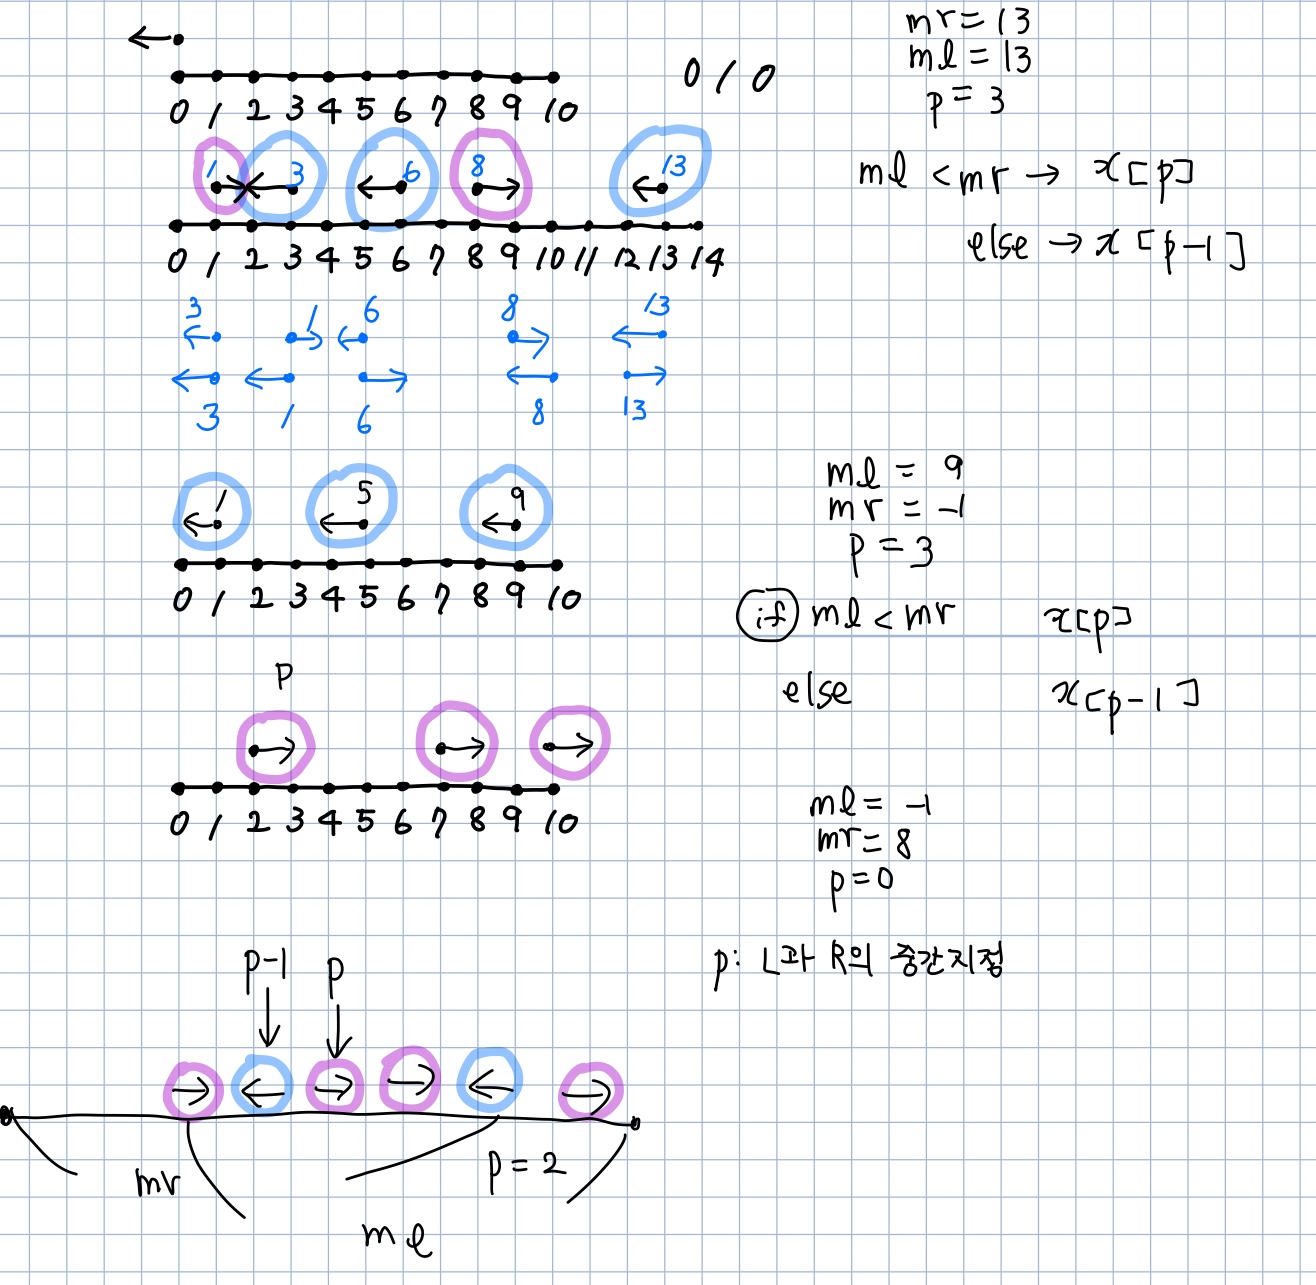 mr = 13
ml = 13
p = 3
0 / 0
0 1 2 3 4 5 6 7 8 9 10
ml < mr → x[p]
1 3 6 8 13
else → x[p-1]
0 1 2 3 4 5 6 7 8 9 10 11 12 13 14
3 1 6 8 13
3 1 6 8 13
ml = 9
mr = -1
p = 3
1 5 9
0 1 2 3 4 5 6 7 8 9 10
if ml < mr x[p]
else x[p-1]
p
0 1 2 3 4 5 6 7 8 9 10
ml = -1
mr = 8
p = 0
p-1 p
p: L과 R의 중간지점
mr
p = 2
ml